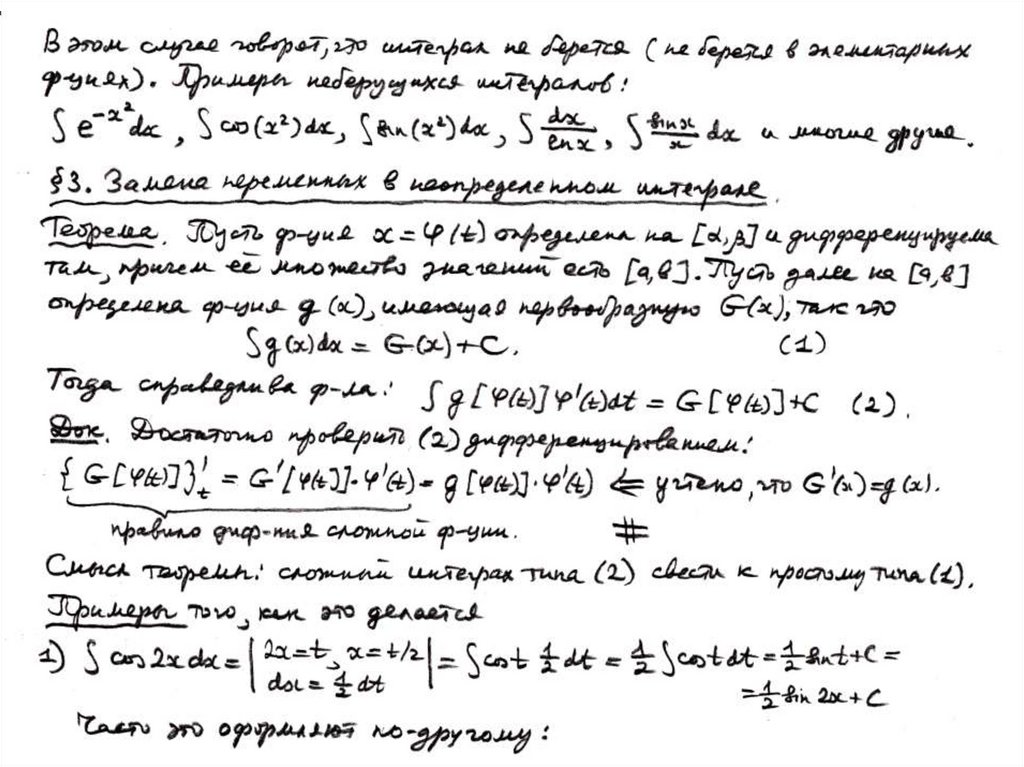 В этом случае говорят, что интеграл не берется (не берется в элементарных
ф-циях). Примеры неберущихся интегралов:
∫ e^{-x²}dx, ∫ cos(x²)dx, ∫ sin(x²)dx, ∫ dx/ln x, ∫ sin x/x dx и многие другие.
§3. Замена переменных в неопределенном интеграле.
Теорема. Пусть ф-ция x = φ(t) определена на [α,β] и дифференцируема
там, причем её множество значений есть [a,b]. Пусть далее на [a,b]
определена ф-ция g(x), имеющая первообразную G(x), так что
∫g(x)dx = G(x)+C. (1)
Тогда справедлива ф-ла: ∫ g[φ(t)]φ'(t)dt = G[φ(t)]+C (2).
Док. Достаточно проверить (2) дифференцированием:
{G[φ(t)]}'_t = G'[φ(t)]·φ'(t) = g[φ(t)]·φ'(t) ⇐ учтено, что G'(x)=g(x).
правило диф-ния сложной ф-ции. #
Смысл теоремы: сложный интеграл типа (2) свести к простому типа (1).
Примеры того, как это делается
1) ∫ cos 2x dx = | 2x=t, x=t/2 dx = 1/2 dt | = ∫ cos t 1/2 dt = 1/2 ∫ cos t dt = 1/2 sin t + C =
= 1/2 sin 2x + C
Часто это оформляют по-другому: